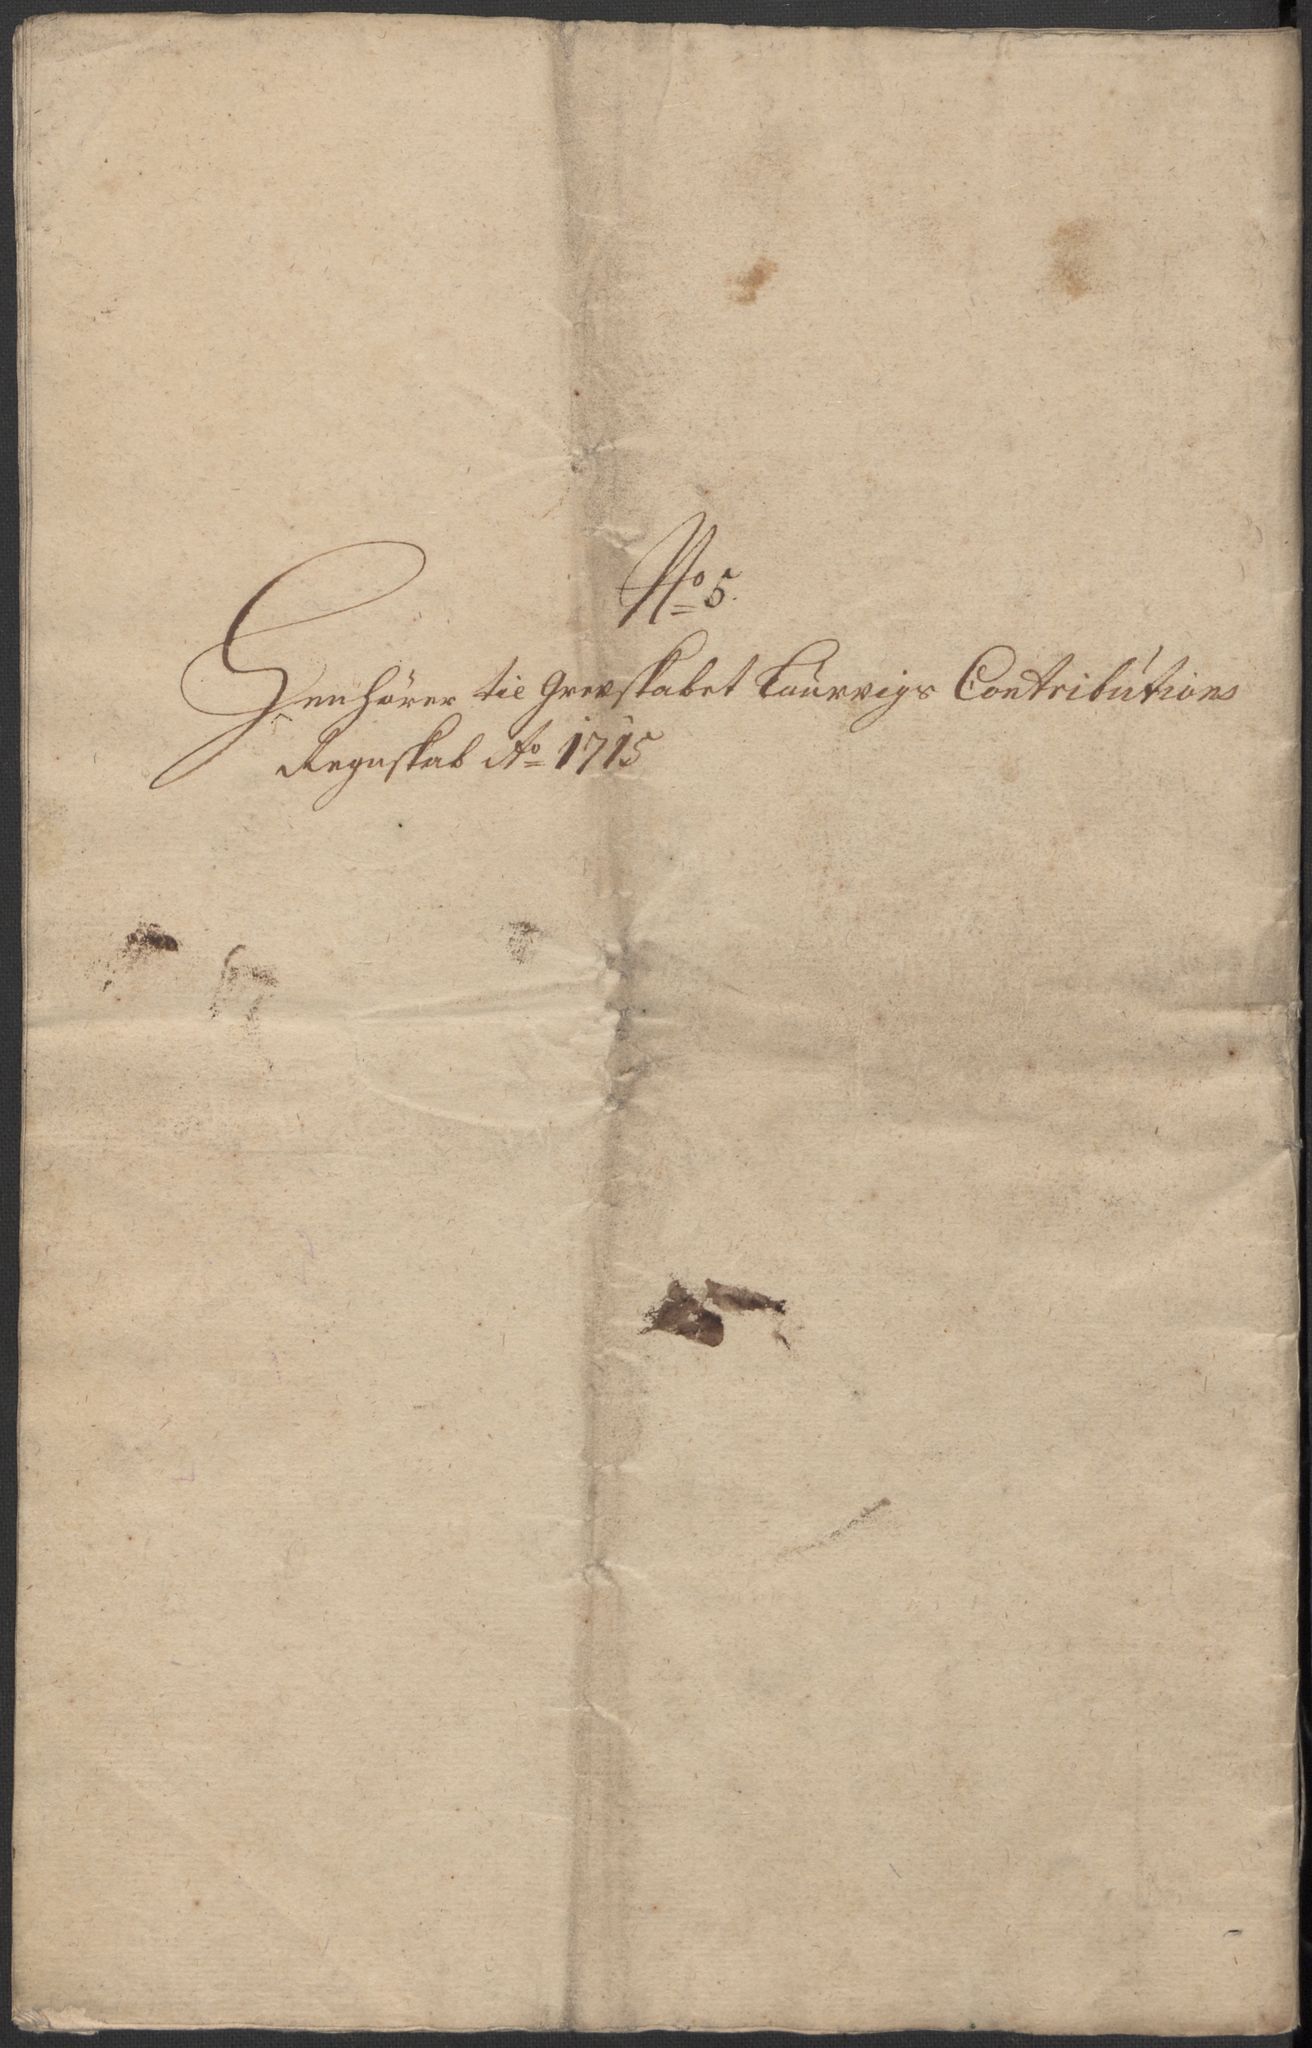 No 5.
Henhörer til Grevskabet Laurvigs Contributions
Regnskab Ao 1715